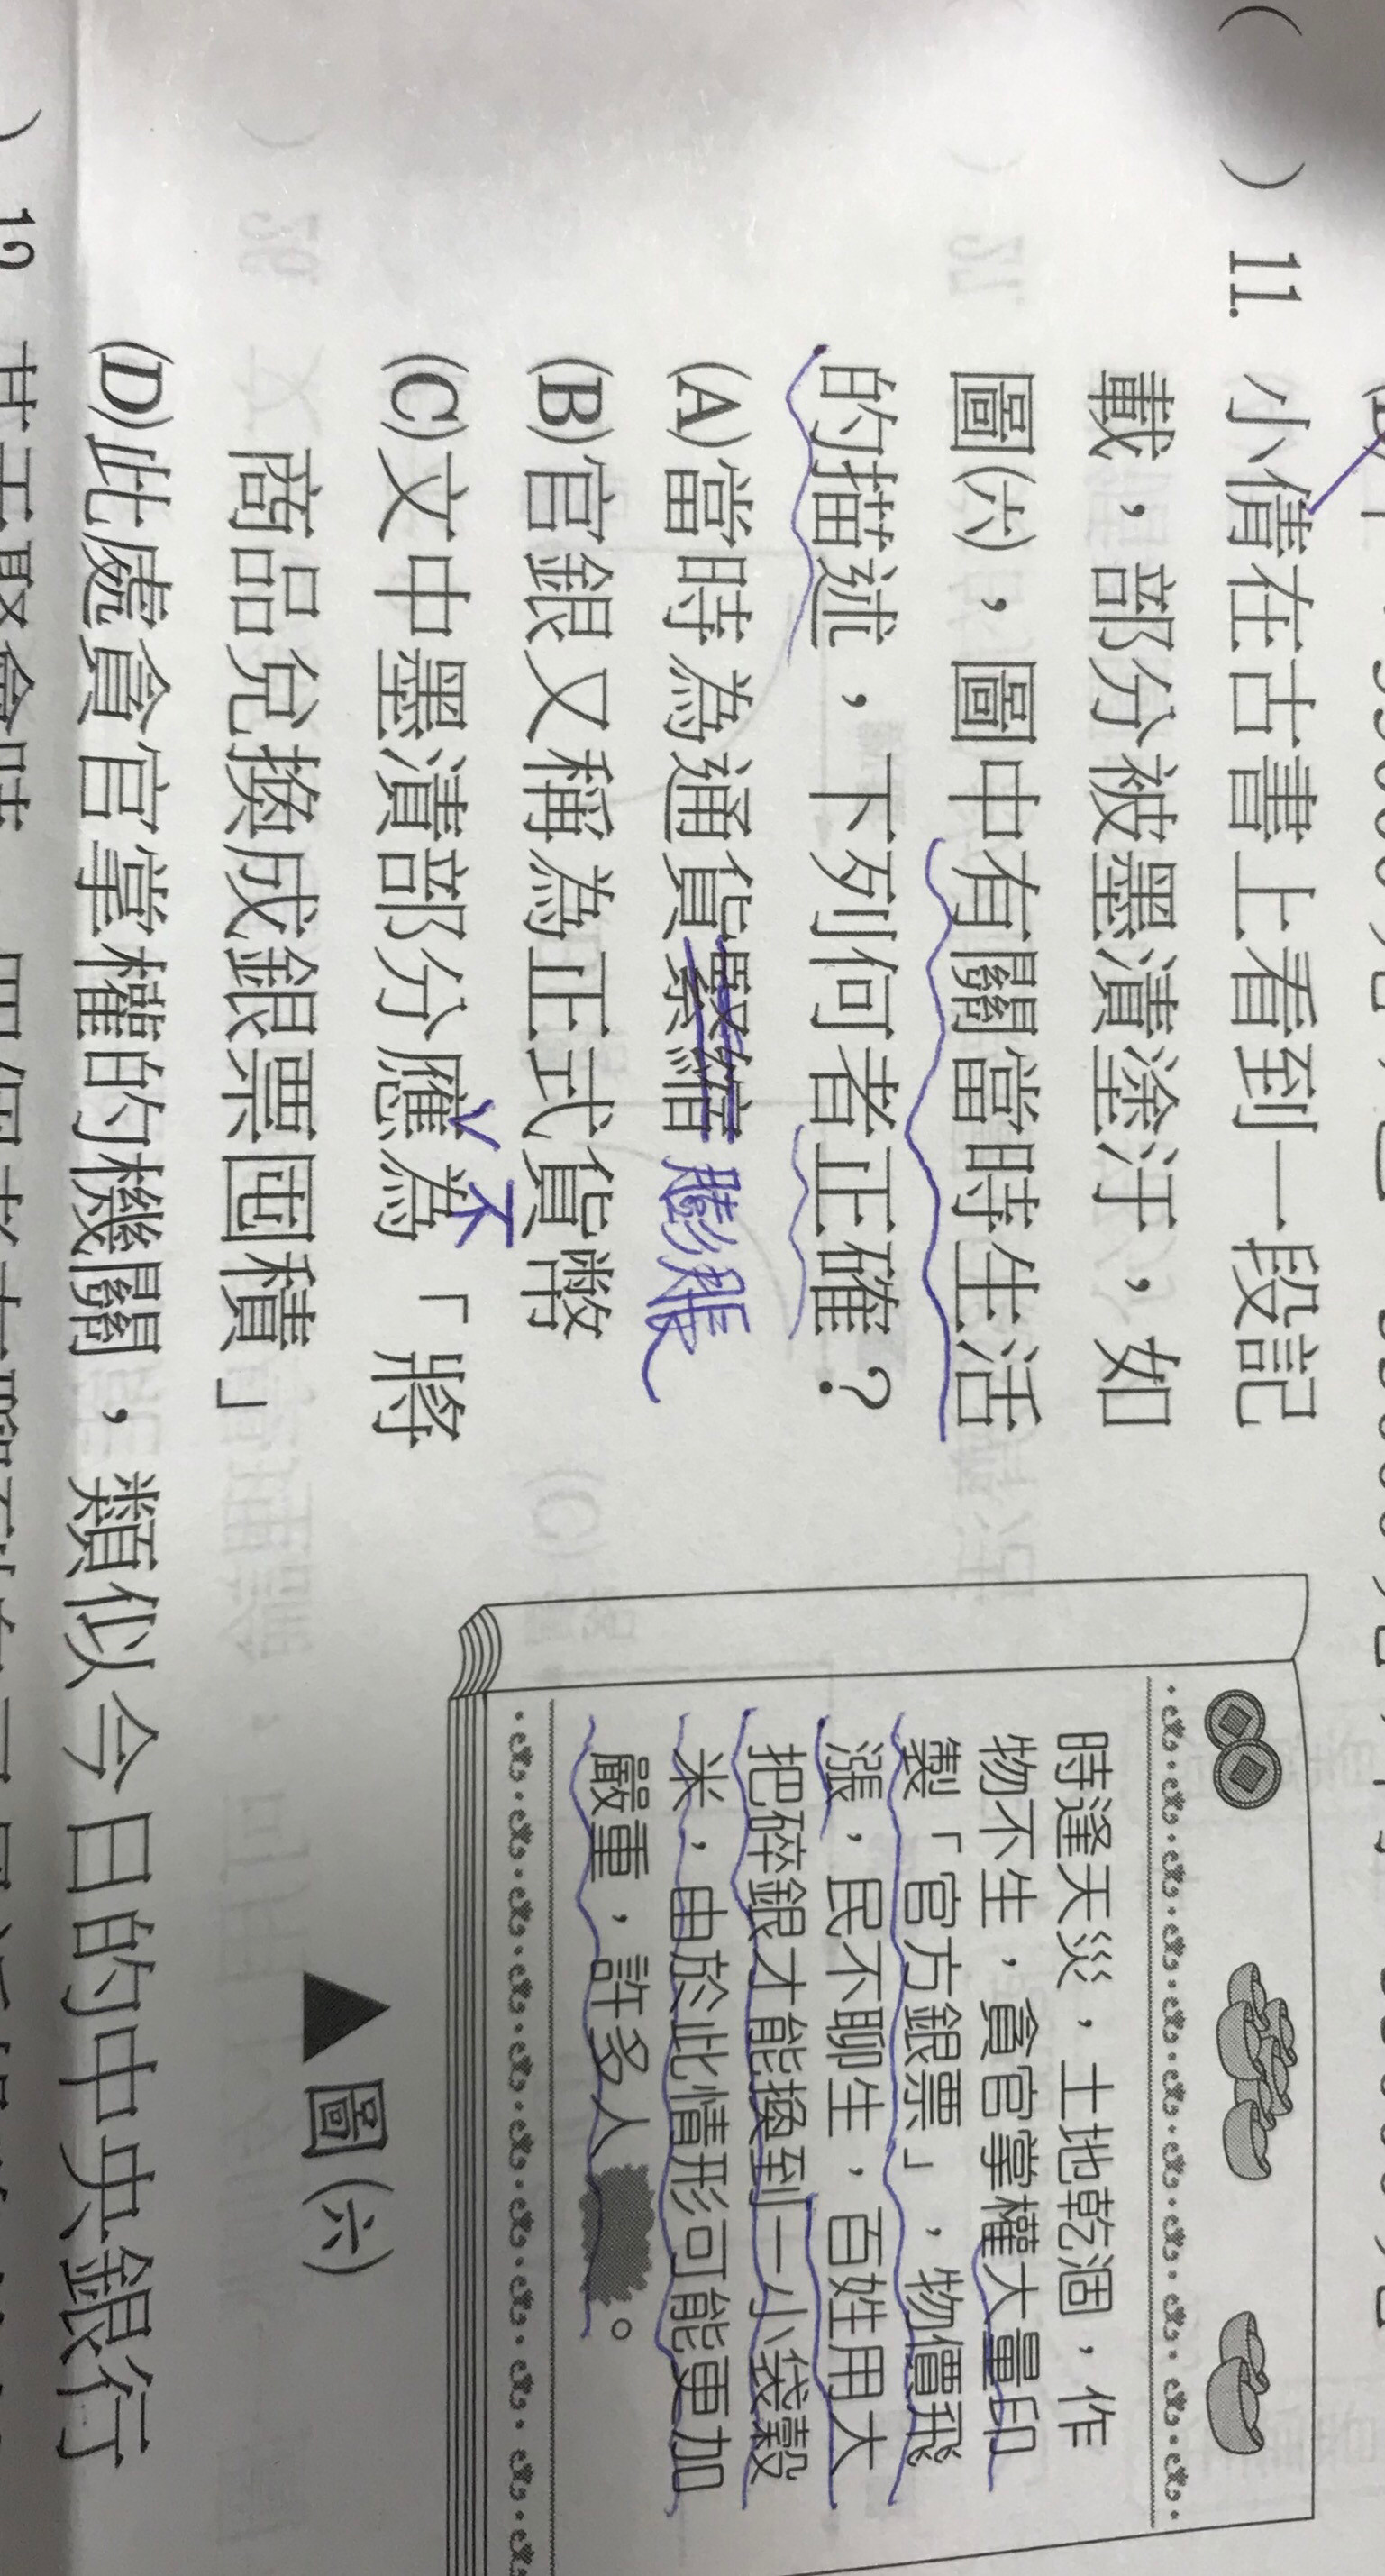 ( ) 11. 小倩在古書上看到一段記
載，部分被墨漬塗汙，如
圖(六)，圖中有關當時生活
的描述，下列何者正確？
(A)當時為通貨緊縮 膨脹
(B)官銀又稱為正式貨幣
(C)文中墨漬部分應為「將
不
商品兌換成銀票囤積」
(D)此處貪官掌權的機關，類似今日的中央銀行
時逢天災，土地乾涸，作
物不生，貪官掌權大量印
製「官方銀票」，物價飛
漲，民不聊生，百姓用大
把碎銀才能換到一小袋穀
米，由於此情形可能更加
嚴重，許多人 。
▲圖(六)
) 12.